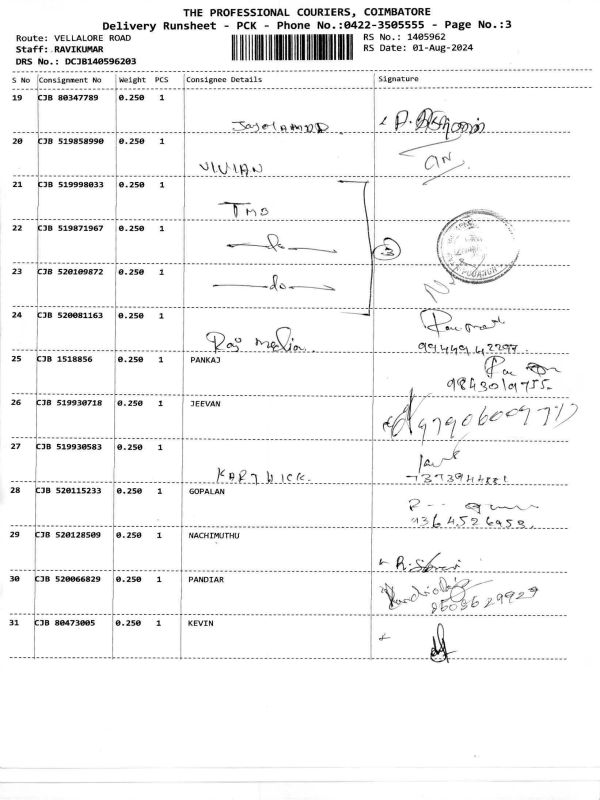 THE PROFESSIONAL COURIERS, COIMBATORE
Delivery Runsheet - PCK - Phone No.:0422-3505555 - Page No.:3
Route: VELLALORE ROAD
RS No.: 1405962
Staff: RAVIKUMAR
RS Date: 01-Aug-2024
DRS No.: DCJB140596203
S No Consignment No Weight PCS Consignee Details Signature
19 CJB 80347789 0.250 1
20 CJB 519858990 0.250 1
VIVIAN
21 CJB 519998033 0.250 1
TMB
22 CJB 519871967 0.250 1
do
3
23 CJB 520109872 0.250 1
do
24 CJB 520081163 0.250 1
25 CJB 1518856 0.250 1 PANKAJ
9843019755
26 CJB 519930718 0.250 1 JEEVAN
27 CJB 519930583 0.250 1
KARTHICK.
28 CJB 520115233 0.250 1 GOPALAN
29 CJB 520128509 0.250 1 NACHIMUTHU
30 CJB 520066829 0.250 1 PANDIAR
31 CJB 80473005 0.250 1 KEVIN